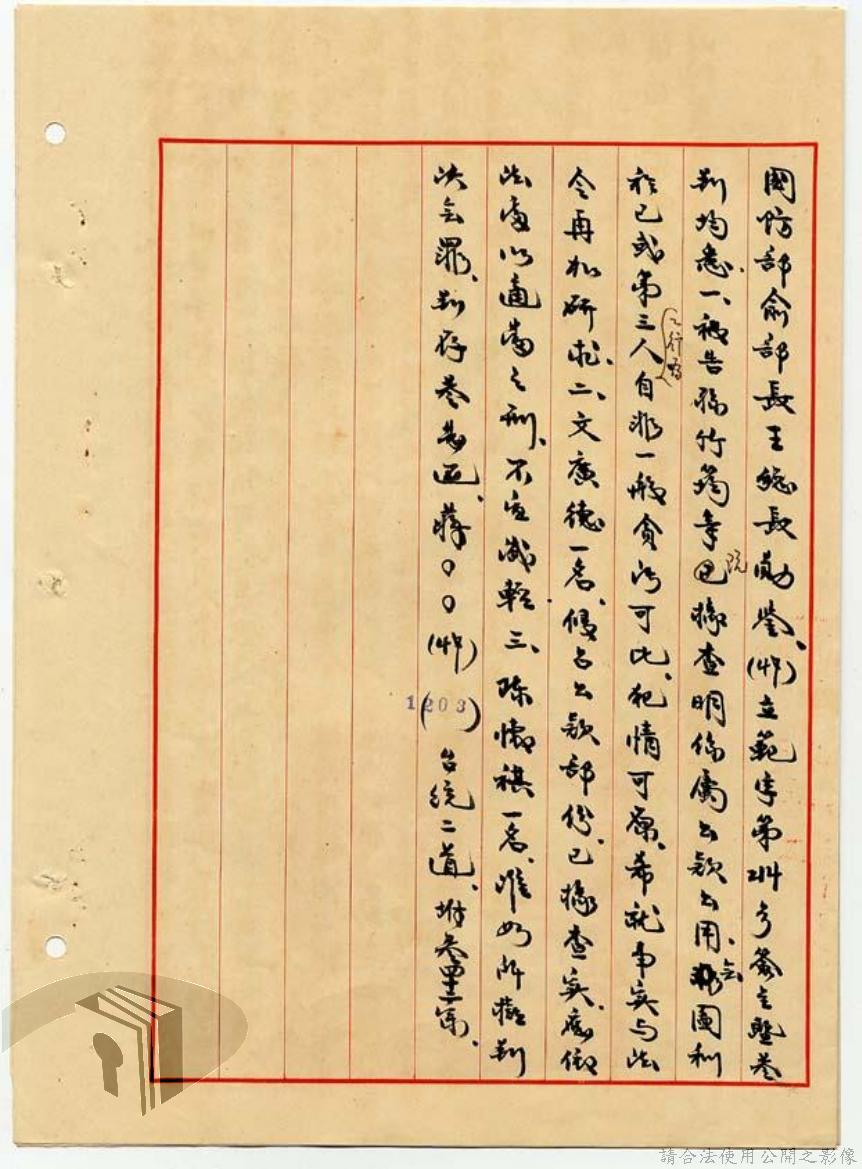 國防部俞部長王總長勛鑒、(49)立範字第214号簽呈暨卷
判均悉一、被告孫竹筠等既據查明係屬公款公用、無圖利
於己或第三人之行為自非一般貪污可比、犯情可原、希就事實与法
令再加研求、二、文廣德一名、侵占公款部份、已據查實、應依
法處以適當之刑、不宜減輕三、陳懷祺一名、准如所擬判
決令罪、判存卷发还、蔣○○(49)
(1203)
台統二道、坿卷宗、
請合法使用公開之影像